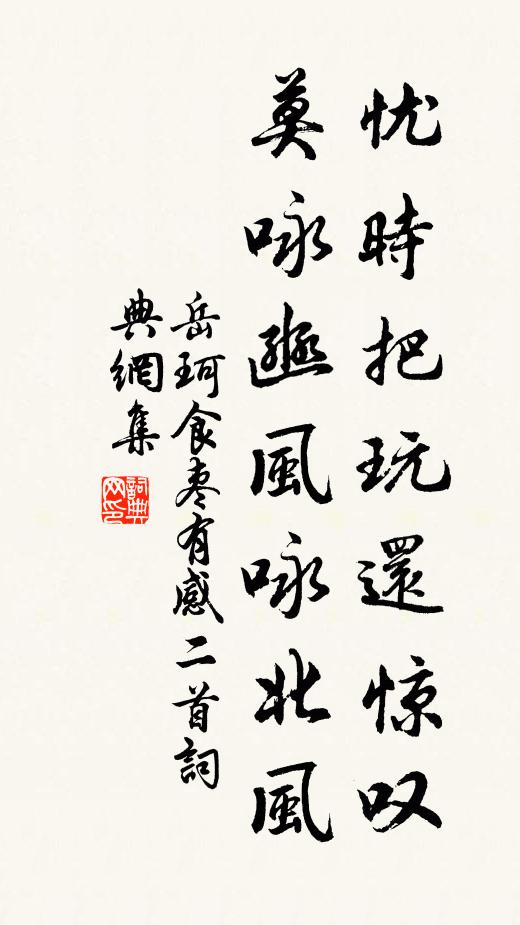 忧時把玩還惊叹
莫咏豳風咏北風
岳珂食枣有感二首詞
典網集
詞典
网印